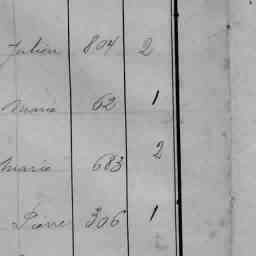 Julien 804 2
Marie 62 1
Marie 683 2
Pierre 306 1